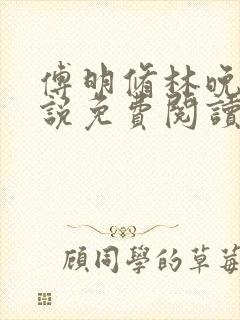 傅明脩林晚
說免費閱讀
顧同學的草莓